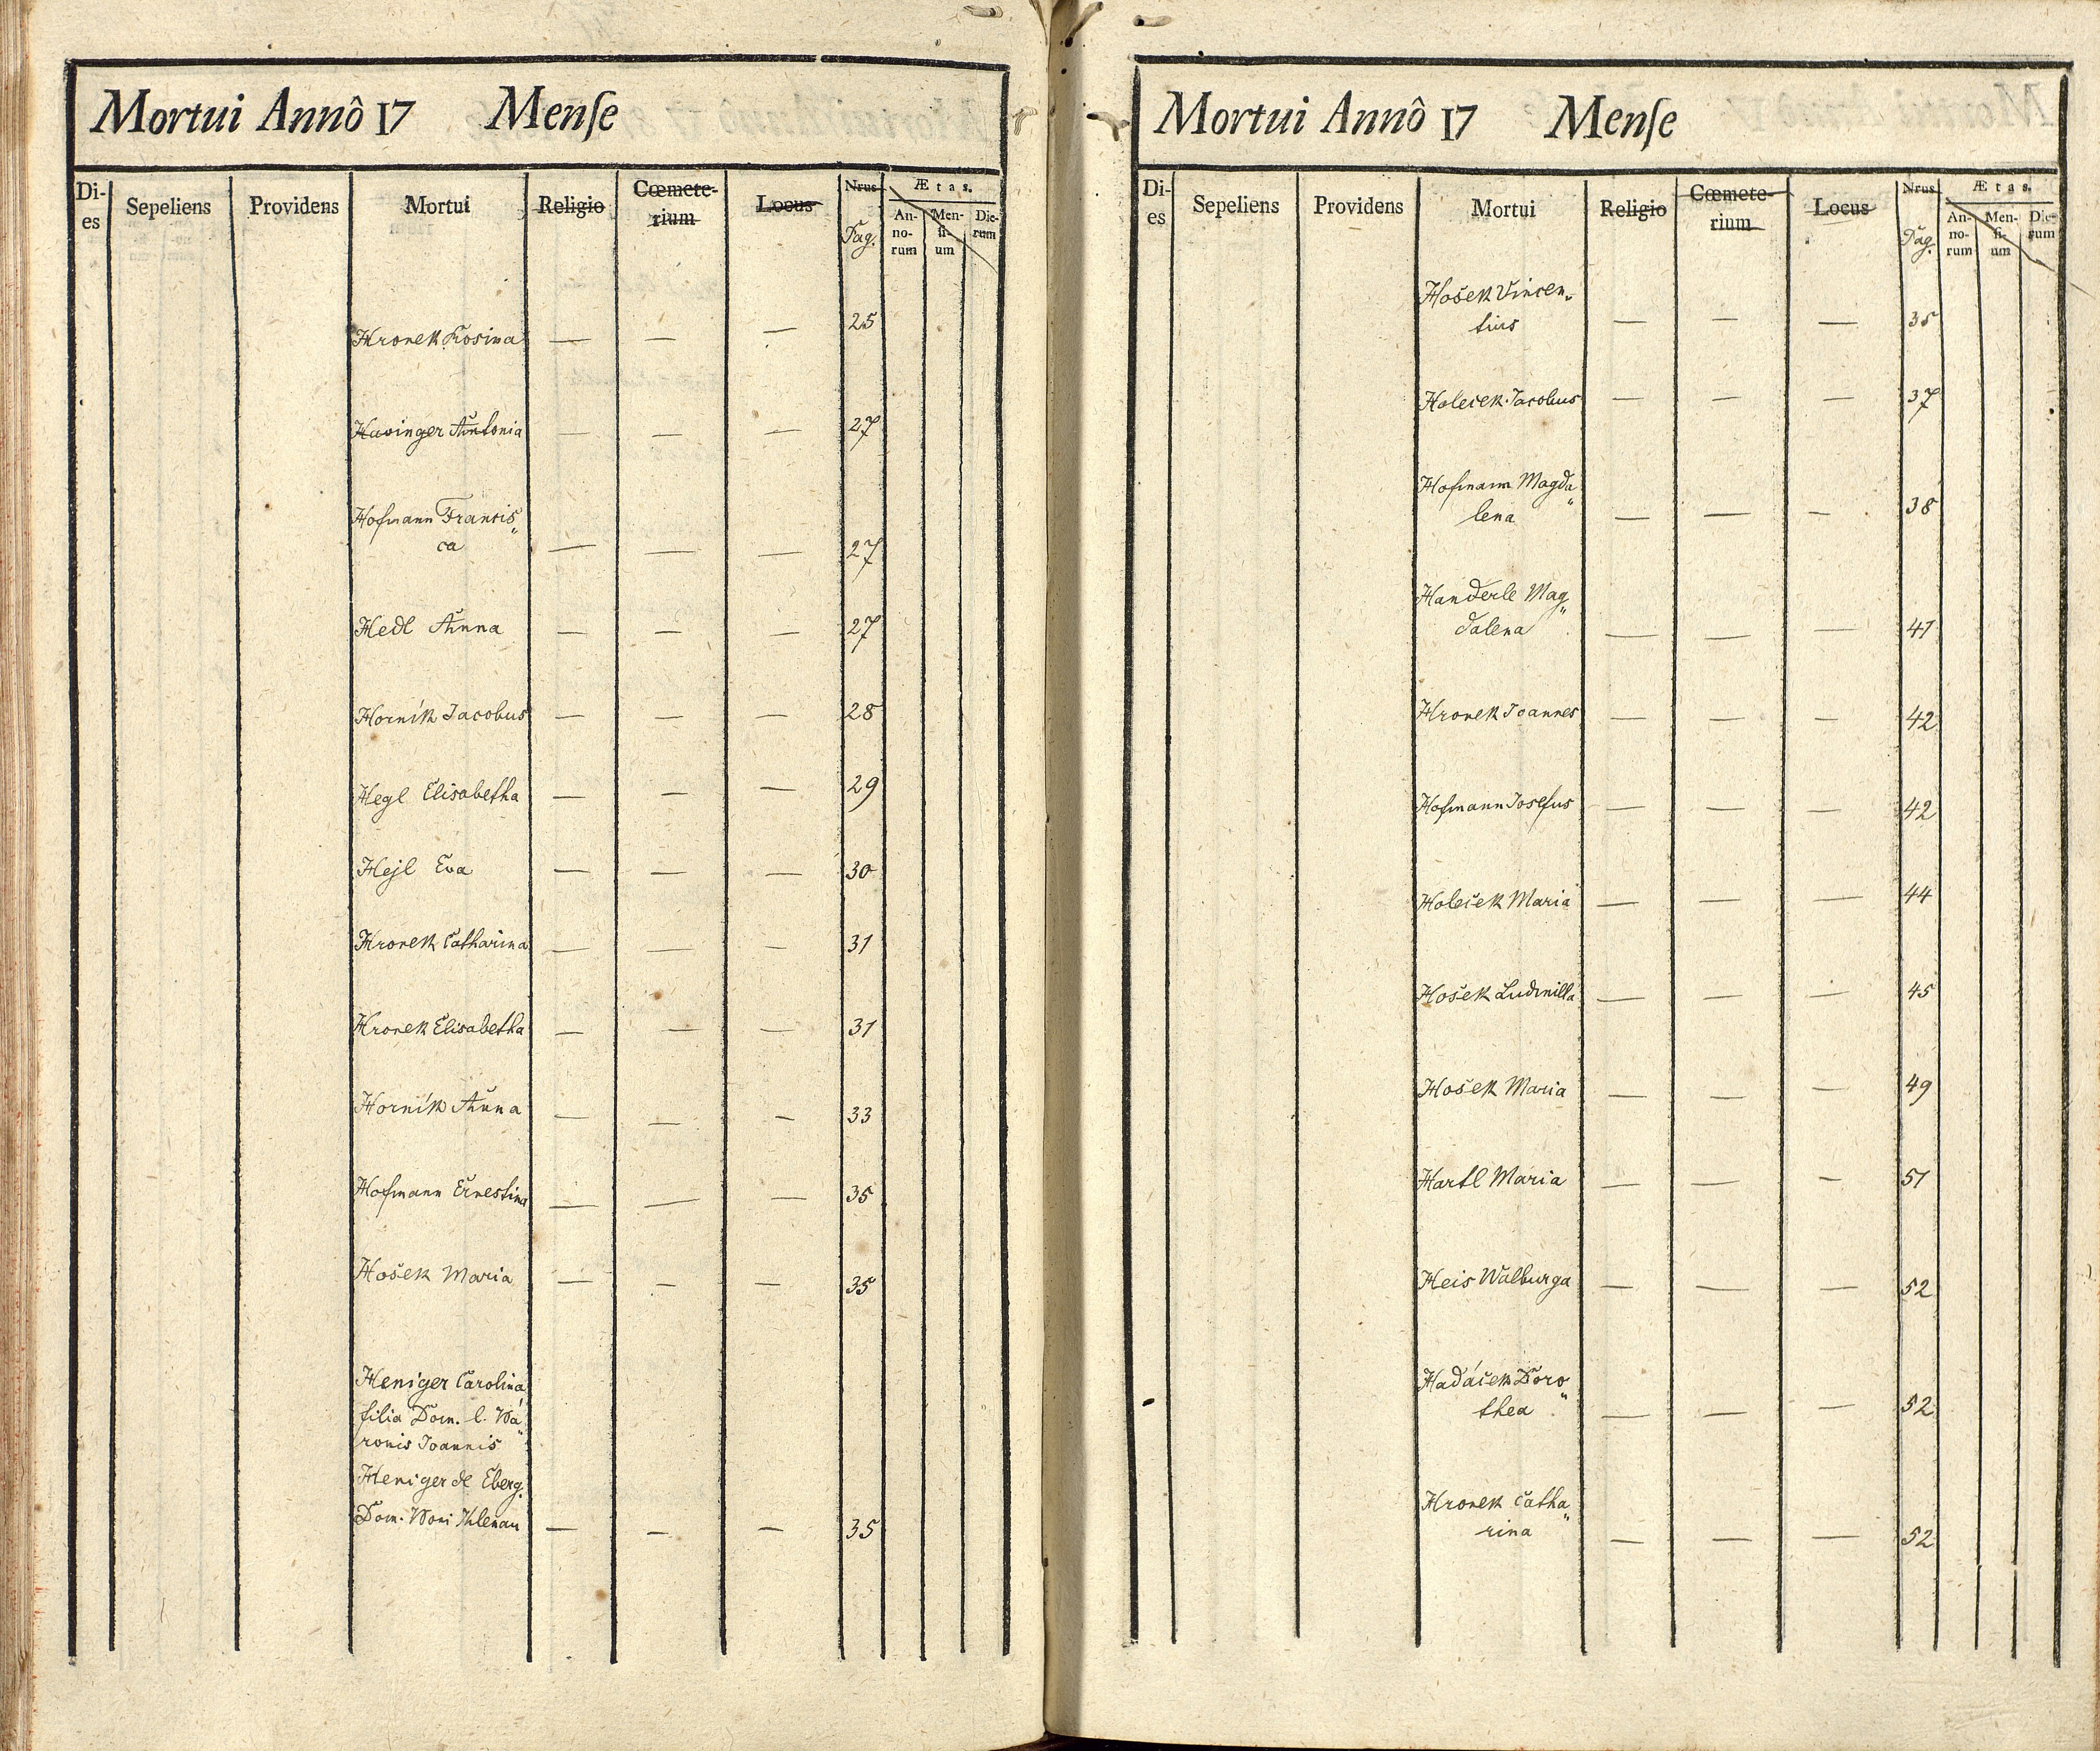 Mortui Annô 17 Menſe
Di-
es
Sepeliens
Providens
Mortui
Religio
Cœmete-
rium
Locus
Nrus
Pag.
Ætas.
An-
no-
rum
Men-
ſi-
um
Die-
rum
Hronek Rosina — — — 25
Havinger Antonia — — — 27
Hofmann Francis„
ca — — — 27
Hedl Anna — — — 27
Hornik Jacobus — — — 28
Hegl Elisabetha — — — 29
Hejl Eva — — — 30
Hronek Catharina — — — 31
Hronek Elisabetha — — — 31
Hornik Anna — — — 33
Hofmann Ernestina — — — 35
Hošek Maria — — — 35
Heniger Carolina
filia Dom. l. Ba„
ronis Joannis
Heniger de Eberg.
Dom. — — — 35
Mortui Annô 17 Menſe
Di-
es
Sepeliens
Providens
Mortui
Religio
Cœmete-
rium
Locus
Nrus
Pag.
Ætas.
An-
no-
rum
Men-
ſi-
um
Die-
rum
Hošek Vincen„
tius — — — 35
Holeček Jacobus — — — 37
Hofmann Magda„
lena — — — 38
Handerle Mag„
dalena — — — 41
Hronek Joannes — — — 42
Hofmann Josefus — — — 42
Holeček Maria — — — 44
Hošek Ludmilla — — — 45
Hošek Maria — — — 49
Hartl Maria — — — 51
Heis Walburga — — — 52
Hadáček Doro„
thea — — — 52
Hronek Catha„
rina — — — 52